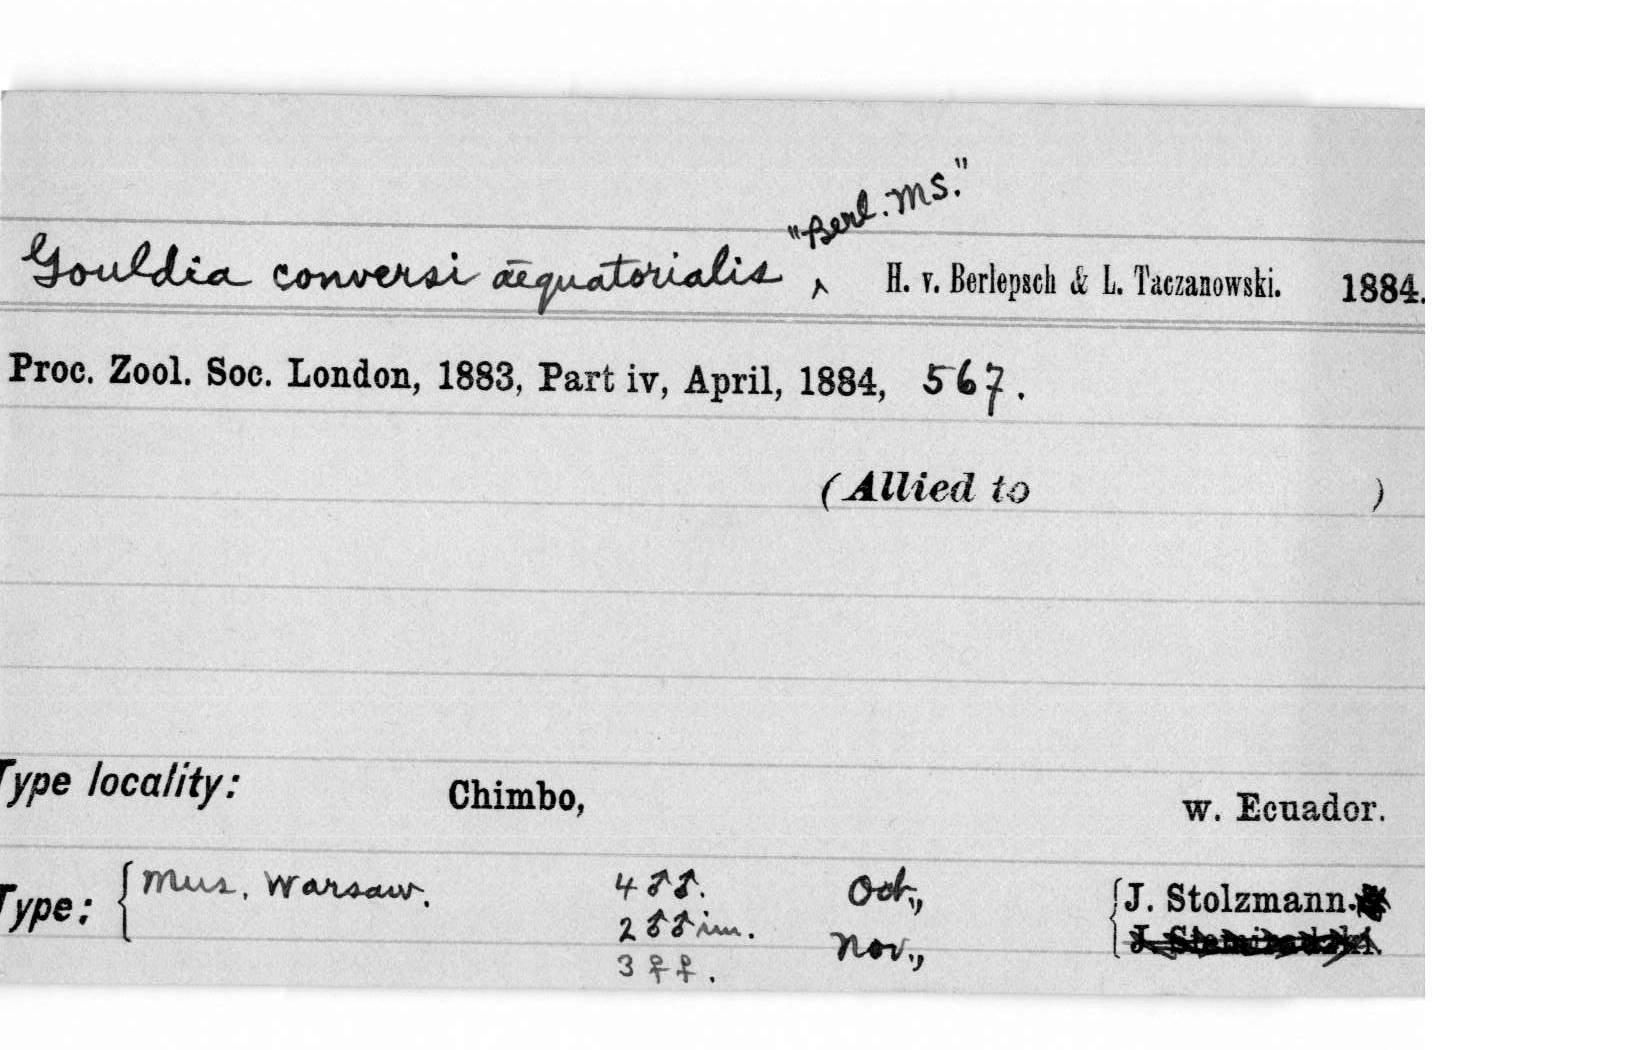 Gouldia conversi æquatorialis ‸ "Berl. MS." H. v. Berlepsch & L. Taczanowski. 1884.
Proc. Zool. Soc. London, 1883, Part iv, April, 1884, 567.
(Allied to )
Type locality: Chimbo, w. Ecuador.
Type: { Mus. Warsaw. 4 ♂♂. Oct., { J. Stolzmann.
2 ♂♂ im. Nov.,
3 ♀♀.